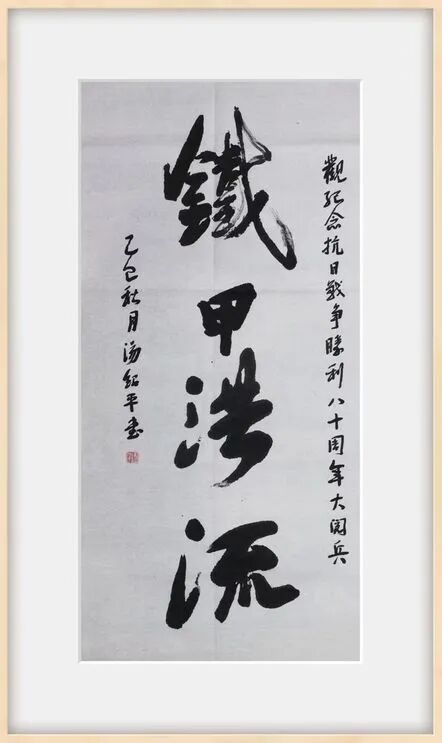 觀紀念抗日戰争勝利八十周年大阅兵
鐵甲洪流
乙巳秋月湯紹平書